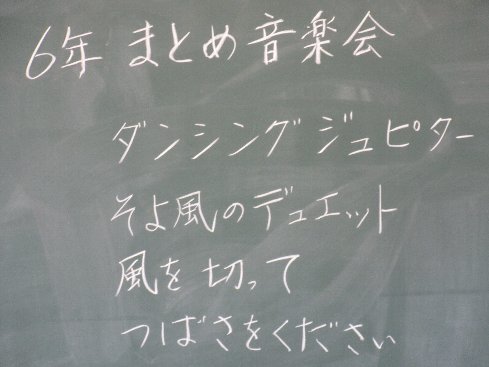 6年 まとめ音楽会
ダンシング ジュピター
そよ風のデュエット
風を切って
つばさをください